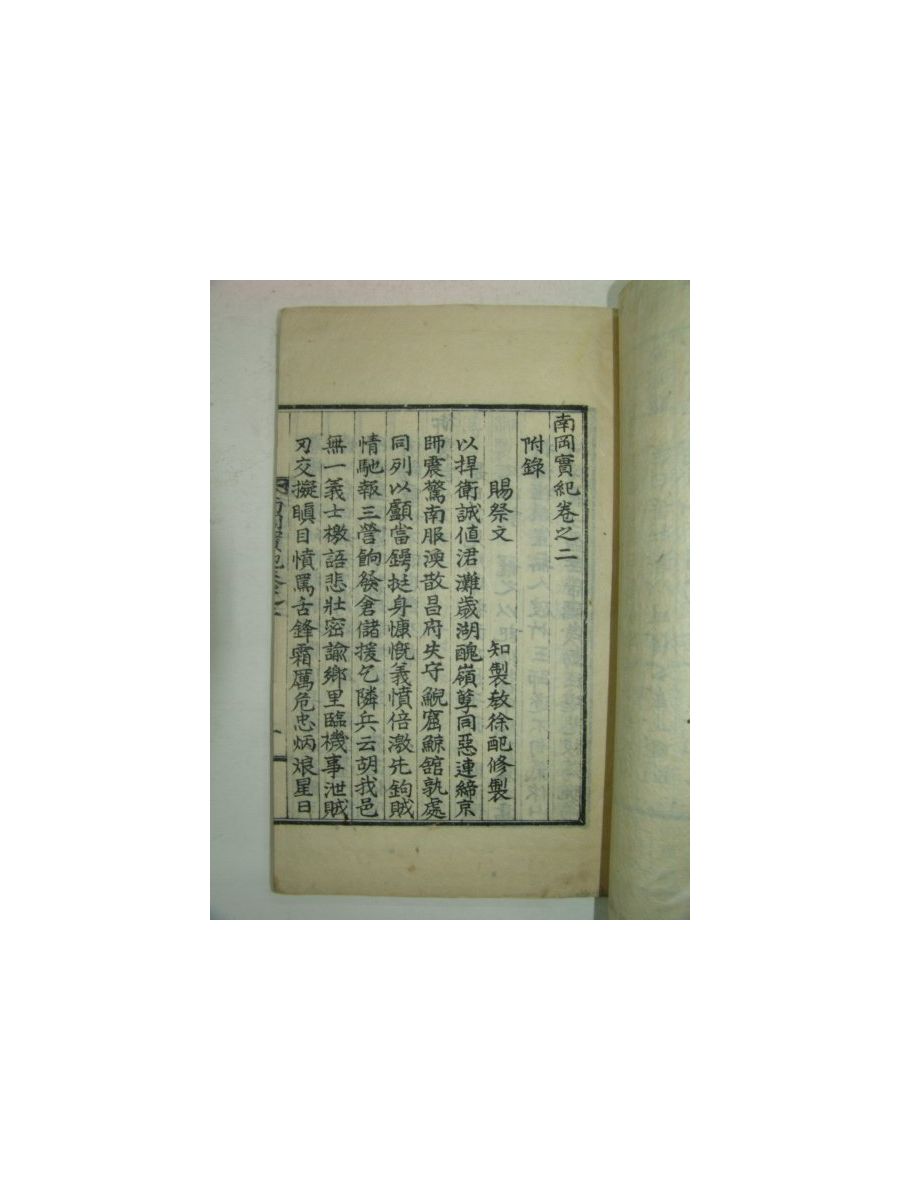 南岡實紀卷之二
附錄
賜祭文 知製敎徐配修製
以捍衛誠値涒灘歲湖醜嶺孽同惡連締京
師震驚南服渙散昌府失守鯢窟鯨舘孰處
同列以顱當鍔挺身慷慨義憤倍激先鉤賊
情馳報三營餉發倉儲援乞隣兵云胡我邑
無一義士檄語悲壯密諭鄕里臨機事泄賊
刃交擬瞋目憤罵舌鋒霜厲危忠炳烺星日